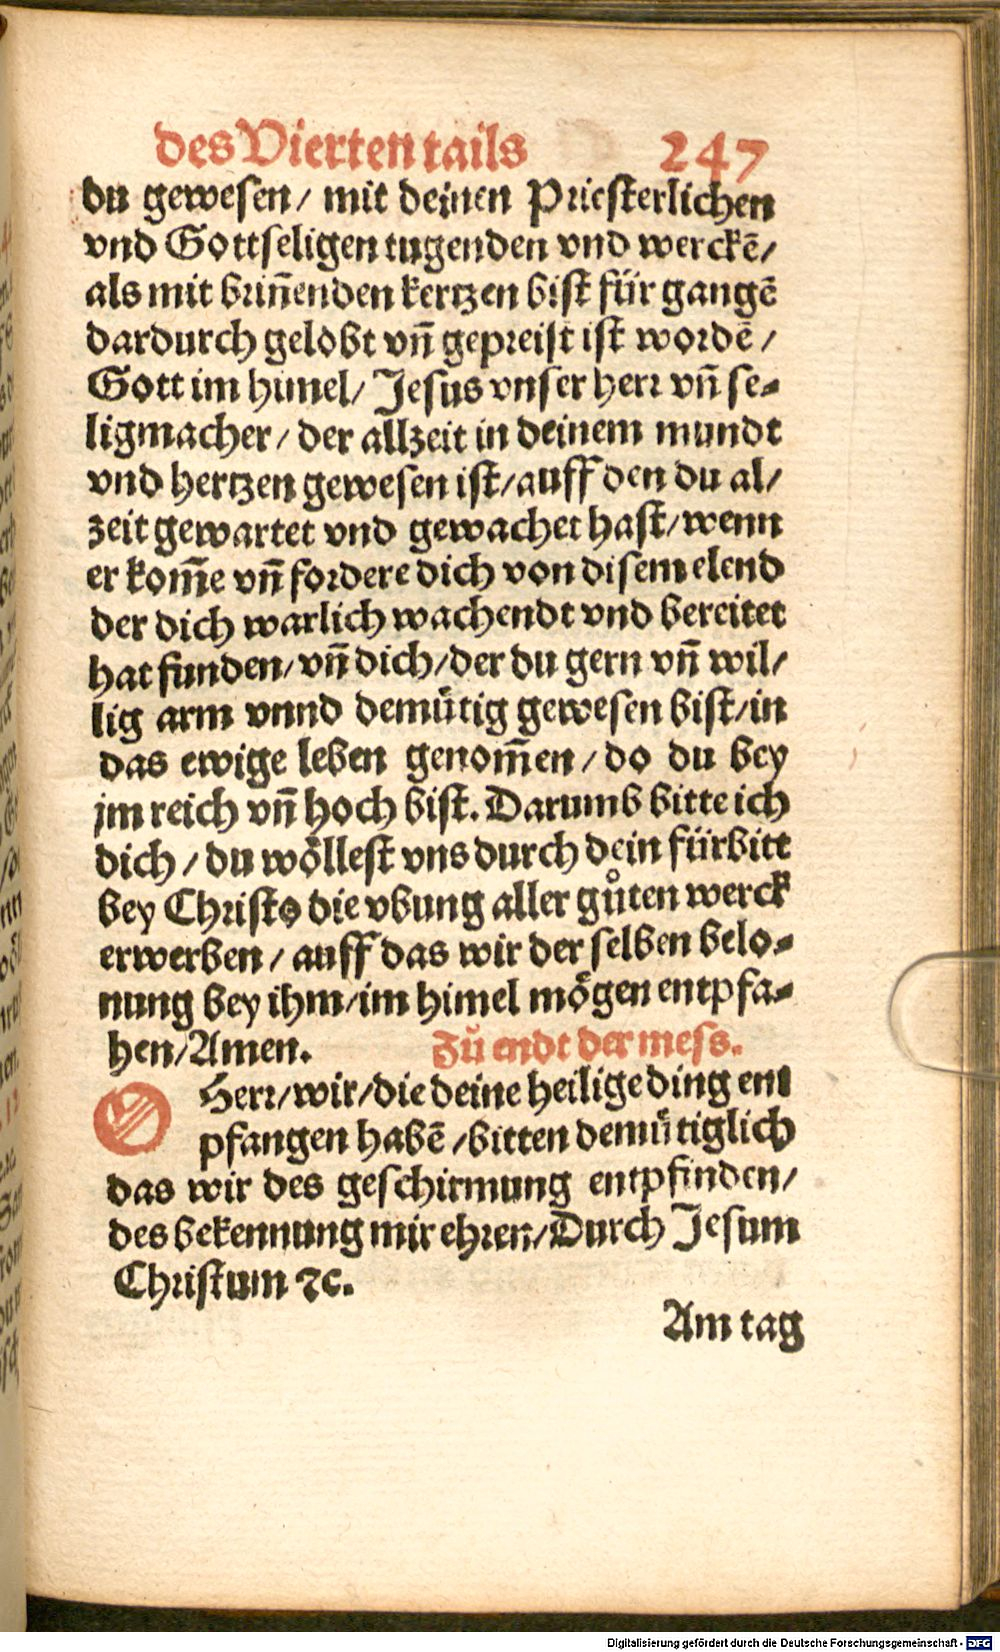 des Vierten tails 247
du gewesen/ mit deinen Priesterlichen
vnd Gottseligen tugenden vnd werckē/
als mit brin̄enden kertzen bist für gangē
dardurch gelobt vn̄ gepreist ist wordē /
Gott im himel/ Jesus vnser herr vn̄ se-
ligmacher/ der allzeit in deinem mundt
vnd hertzen gewesen ist/auff den du al/
zeit gewartet vnd gewachet hast/wenn
er kom̄e vn̄ fordere dich von disem elend
der dich warlich wachendt vnd bereitet
hat funden/vn̄ dich/der du gern vn̄ wil/
lig arm vnnd demütig gewesen bist/in
das ewige leben genom̄en/do du bey
jm reich vn̄ hoch bist. Darumb bitte ich
dich/ du wöllest vns durch dein fürbitt
bey Christo die vbung aller gůten werck
erwerben/ auff das wir der selben belo-
nung bey ihm/im himel mögen entpfa-
hen/Amen. Zů endt der mess.
O Herr/wir/die deine heilige ding ent
pfangen habē/bitten demütiglich
das wir des geschirmung entpfinden/
des bekennung mir ehren/Durch Jesum
Christum ꝛc.
Am tag
Digitalisierung gefördert durch die Deutsche Forschungsgemeinschaft - DFG